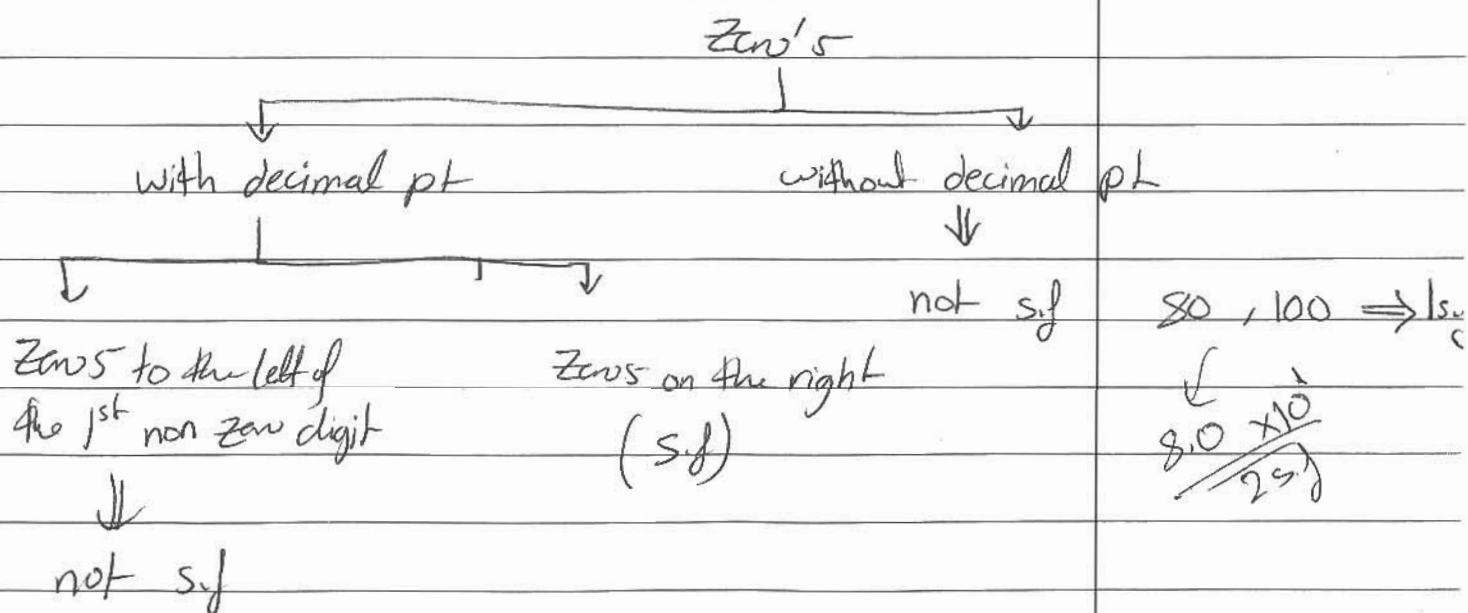 Zero's
with decimal pt without decimal pt
not s.f 80 , 100 ⇒ 1s.
Zeros to the left of
the 1st non zero digit
Zeros on the right
(s.f)
8.0 x10¹
2 s.f
not s.f